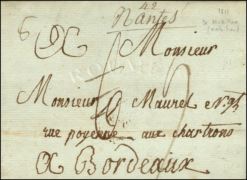 42
Nantes
A Monsieur
Monsieur Maurel
rue poyenne aux chartrons
A Bordeaux